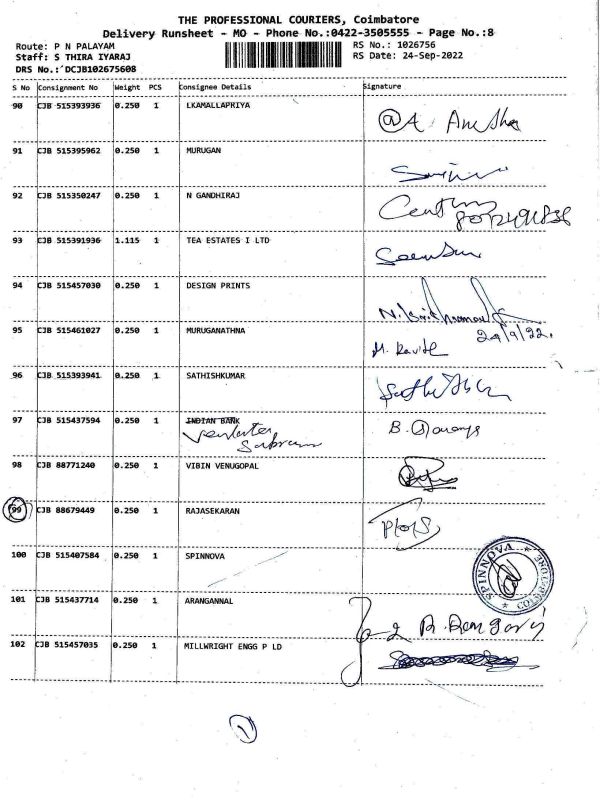 THE PROFESSIONAL COURIERS, Coimbatore
Delivery Runsheet - MO - Phone No.:0422-3505555 - Page No.:8
Route: P N PALAYAM RS No.: 1026756
Staff: S THIRA IYARAJ RS Date: 24-Sep-2022
DRS No.: DCJB102675608
S No Consignment No Weight PCS Consignee Details Signature
90 CJB 515393936 0.250 1 LKAMALLAPRIYA
91 CJB 515395962 0.250 1 MURUGAN
92 CJB 515350247 0.250 1 N GANDHIRAJ
93 CJB 515391936 1.115 1 TEA ESTATES I LTD
94 CJB 515457030 0.250 1 DESIGN PRINTS
24/9/22.
95 CJB 515461027 0.250 1 MURUGANATHNA
96 CJB 515393941 0.250 1 SATHISHKUMAR
97 CJB 515437594 0.250 1 INDIAN BANK
98 CJB 88771240 0.250 1 VIBIN VENUGOPAL
99 CJB 88679449 0.250 1 RAJASEKARAN
100 CJB 515407584 0.250 1 SPINNOVA
SPINNOVA
101 CJB 515437714 0.250 1 ARANGANNAL
102 CJB 515457035 0.250 1 MILLWRIGHT ENGG P LD
1